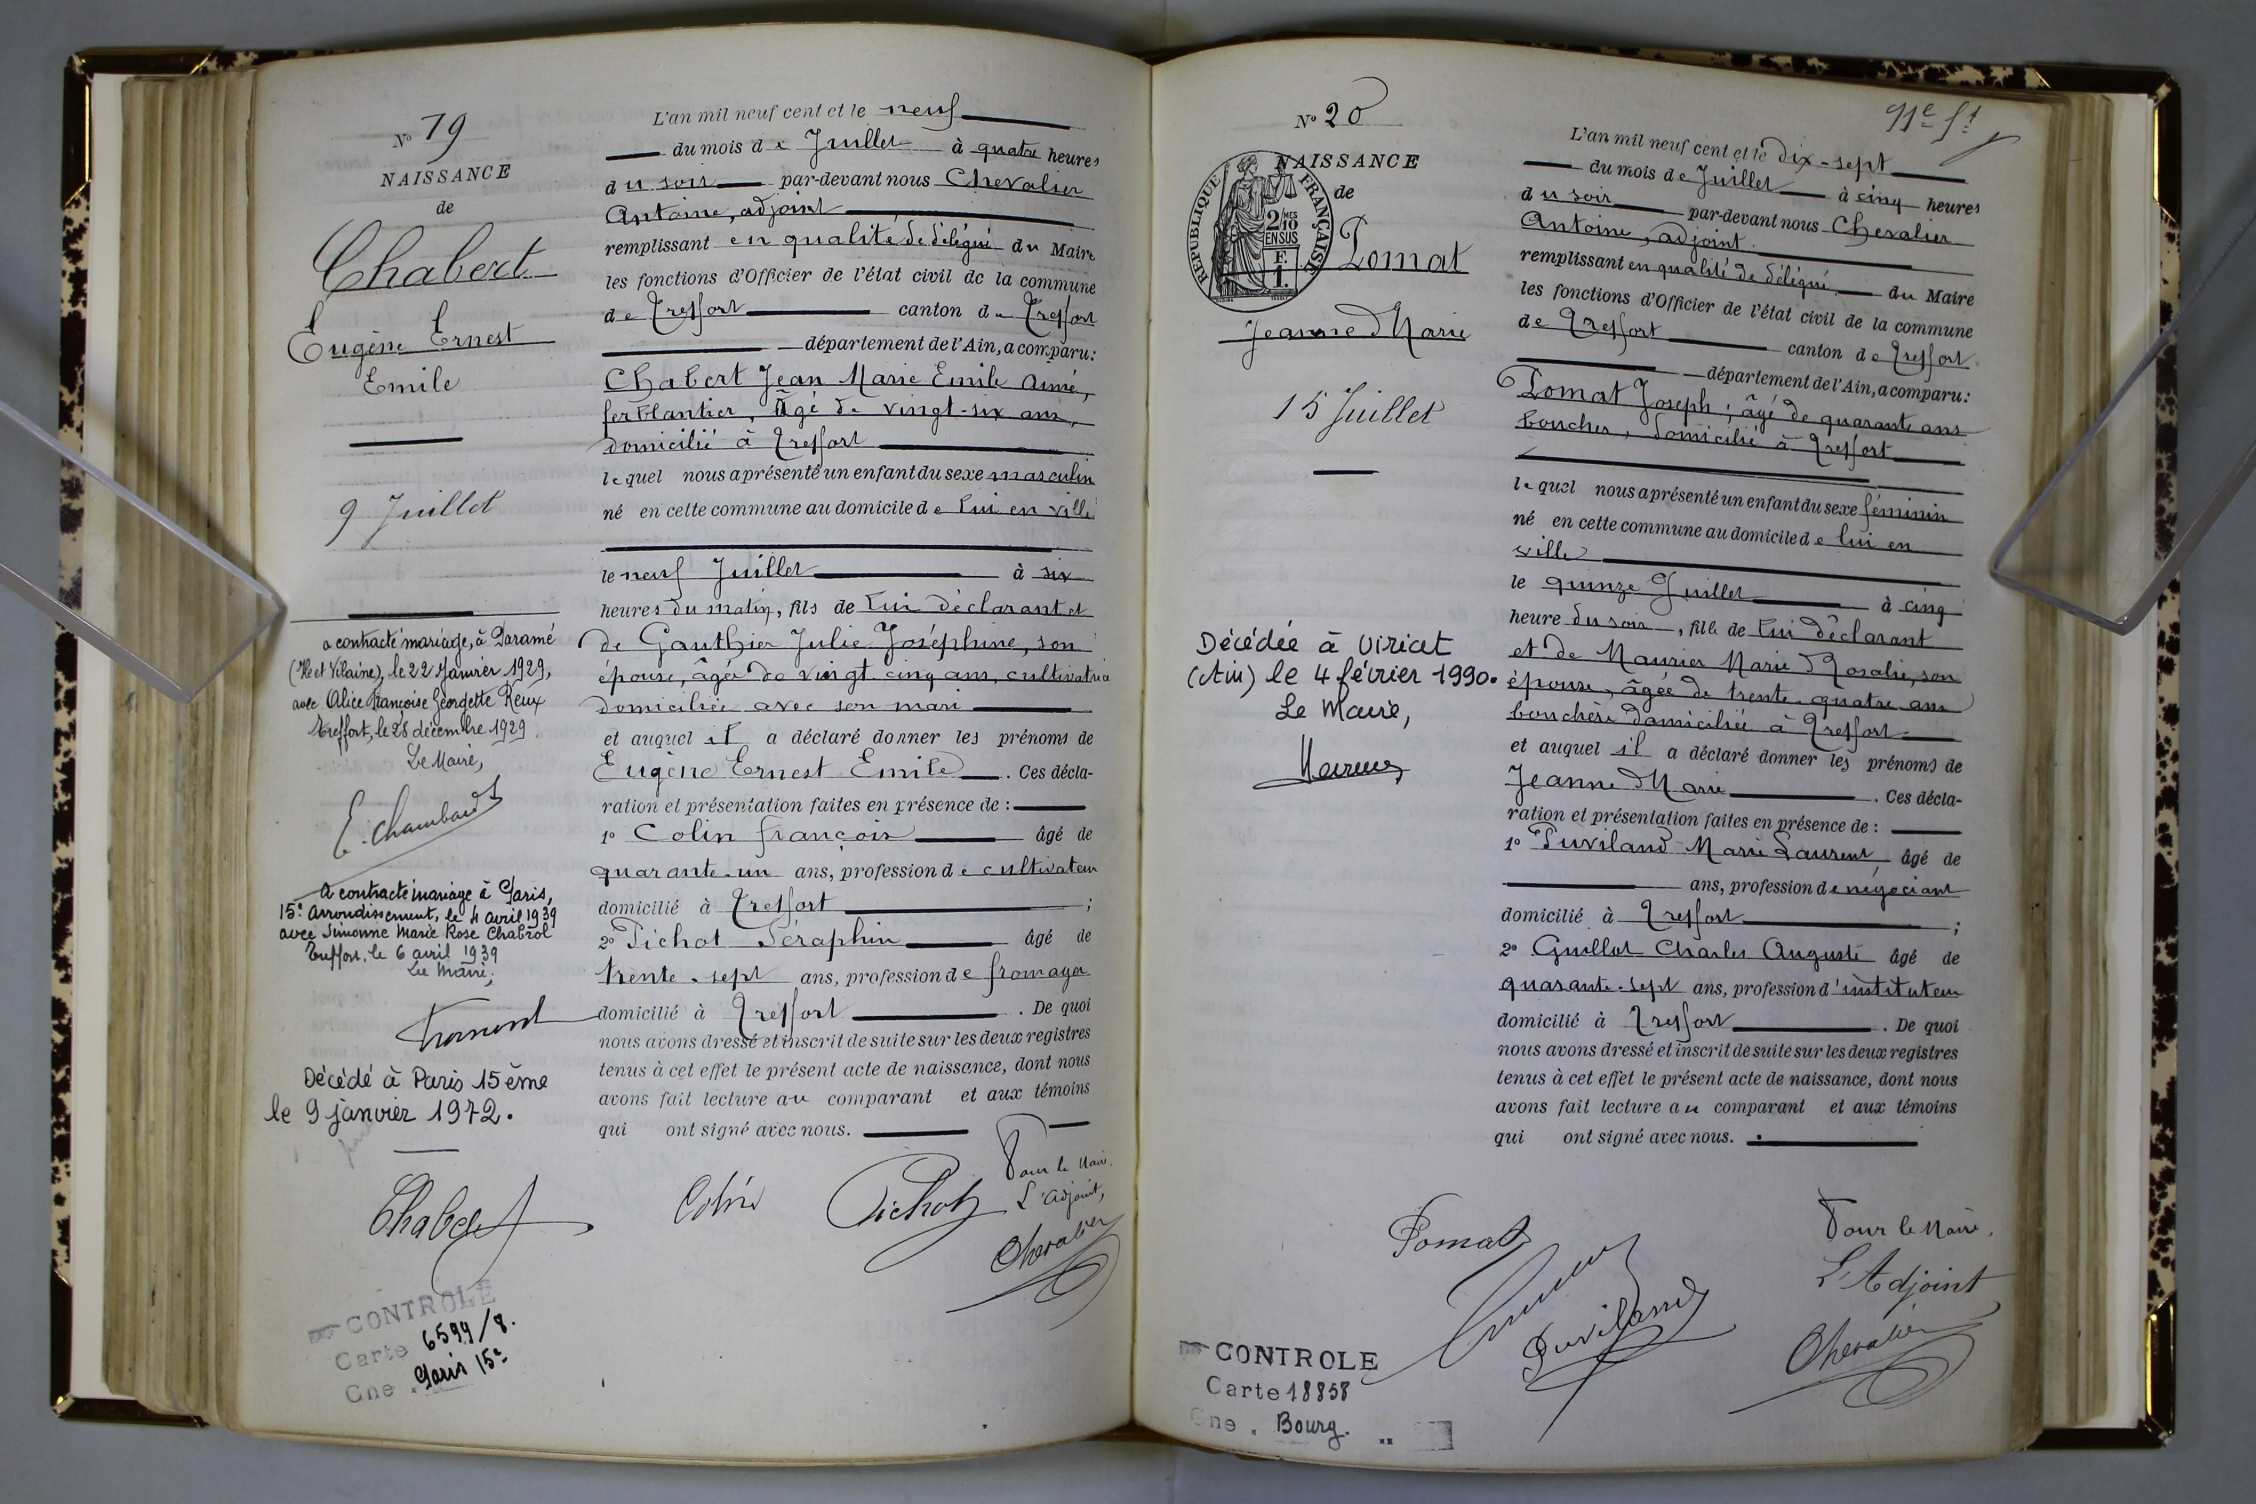 N° 19
NAISSANCE
de
Chabert
Eugène Ernest
Emile
9 Juillet
a contracté mariage, à Paramé
(Ile et Vilaine), le 22 Janvier 1929,
avec Alice Françoise Georgette Reux
Treffort, le 28 décembre 1929
Le Maire,
E. Chambard
A contracté mariage à Paris,
15e arrondissement, le 4 avril 1939
avec Simonne Marie Rose Chabrol
Treffort, le 6 avril 1939
Le Maire,
Décédé à Paris 15ème
le 9 janvier 1972.
L'an mil neuf cent et le neuf
du mois de Juillet à quatre heures
du soir par-devant nous Chevalier
Antoine, adjoint
remplissant en qualité de délégué du Maire
les fonctions d'Officier de l'état civil de la commune
de Treffort canton de Treffort
département de l'Ain, a comparu:
Chabert Jean Marie Emile Aimé,
ferblantier, âgé de vingt-six ans,
domicilié à Treffort
lequel nous a présenté un enfant du sexe masculin
né en cette commune au domicile de lui en ville
le neuf Juillet à six
heures du matin, fils de lui déclarant et
de Gauthier Julie Joséphine, son
épouse, âgée de vingt-cinq ans, cultivatrice
domiciliée avec son mari
et auquel il a déclaré donner les prénoms de
Eugène Ernest Emile . Ces décla-
ration et présentation faites en présence de :
1° Colin françois âgé de
quarante-un ans, profession de cultivateur
domicilié à Treffort ;
2° Pichot Séraphin âgé de
trente-sept ans, profession de fromager
domicilié à Treffort . De quoi
nous avons dressé et inscrit de suite sur les deux registres
tenus à cet effet le présent acte de naissance, dont nous
avons fait lecture au comparant et aux témoins
qui ont signé avec nous.
Chabert Colin Pichot
Pour le Maire.
L'adjoint,
Chevalier
CONTROLE
Carte 6599/8.
Cne . Paris 15e
N° 20
NAISSANCE
de
REPUBLIQUE FRANÇAISE
2/10 MES
EN SUS
F.
1.
Pomat
Jeanne Marie
15 Juillet
Décédée à Viriat
(Ain) le 4 février 1990.
Le Maire,
11e ft
L'an mil neuf cent et le dix-sept
du mois de Juillet à cinq heures
du soir par-devant nous Chevalier
Antoine, adjoint
remplissant en qualité de délégué du Maire
les fonctions d'Officier de l'état civil de la commune
de Treffort canton de Treffort
département de l'Ain, a comparu:
Pomat Joseph, âgé de quarante ans
boucher, domicilié à Treffort
lequel nous a présenté un enfant du sexe féminin
né en cette commune au domicile de lui en
ville
le quinze Juillet à cinq
heure du soir, fille de lui déclarant
et de Maurier Marie Rosalie, son
épouse, âgée de trente-quatre ans
bouchère domiciliée à Treffort
et auquel il a déclaré donner les prénoms de
Jeanne Marie . Ces décla-
ration et présentation faites en présence de :
1° Puviland Marie Laurent âgé de
ans, profession de négociant
domicilié à Treffort ;
2° Guillot Charles Auguste âgé de
quarante-sept ans, profession d'instituteur
domicilié à Treffort . De quoi
nous avons dressé et inscrit de suite sur les deux registres
tenus à cet effet le présent acte de naissance, dont nous
avons fait lecture au comparant et aux témoins
qui ont signé avec nous.
Pomat
Puviland
Pour le Maire,
L'Adjoint
Chevalier
CONTROLE
Carte 18858
Cne . Bourg.